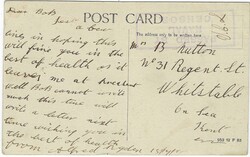 Dear Bob
Just a few
lines in hoping this
will find you in the
best of health as it
leaves me at present
well Bob cannot write
much this time will
write a letter next
time wishing you in
the best of health
from Alfred
POST CARD
Mr B Nutton
No 31 Regent St
Whitstable
on Sea
Kent